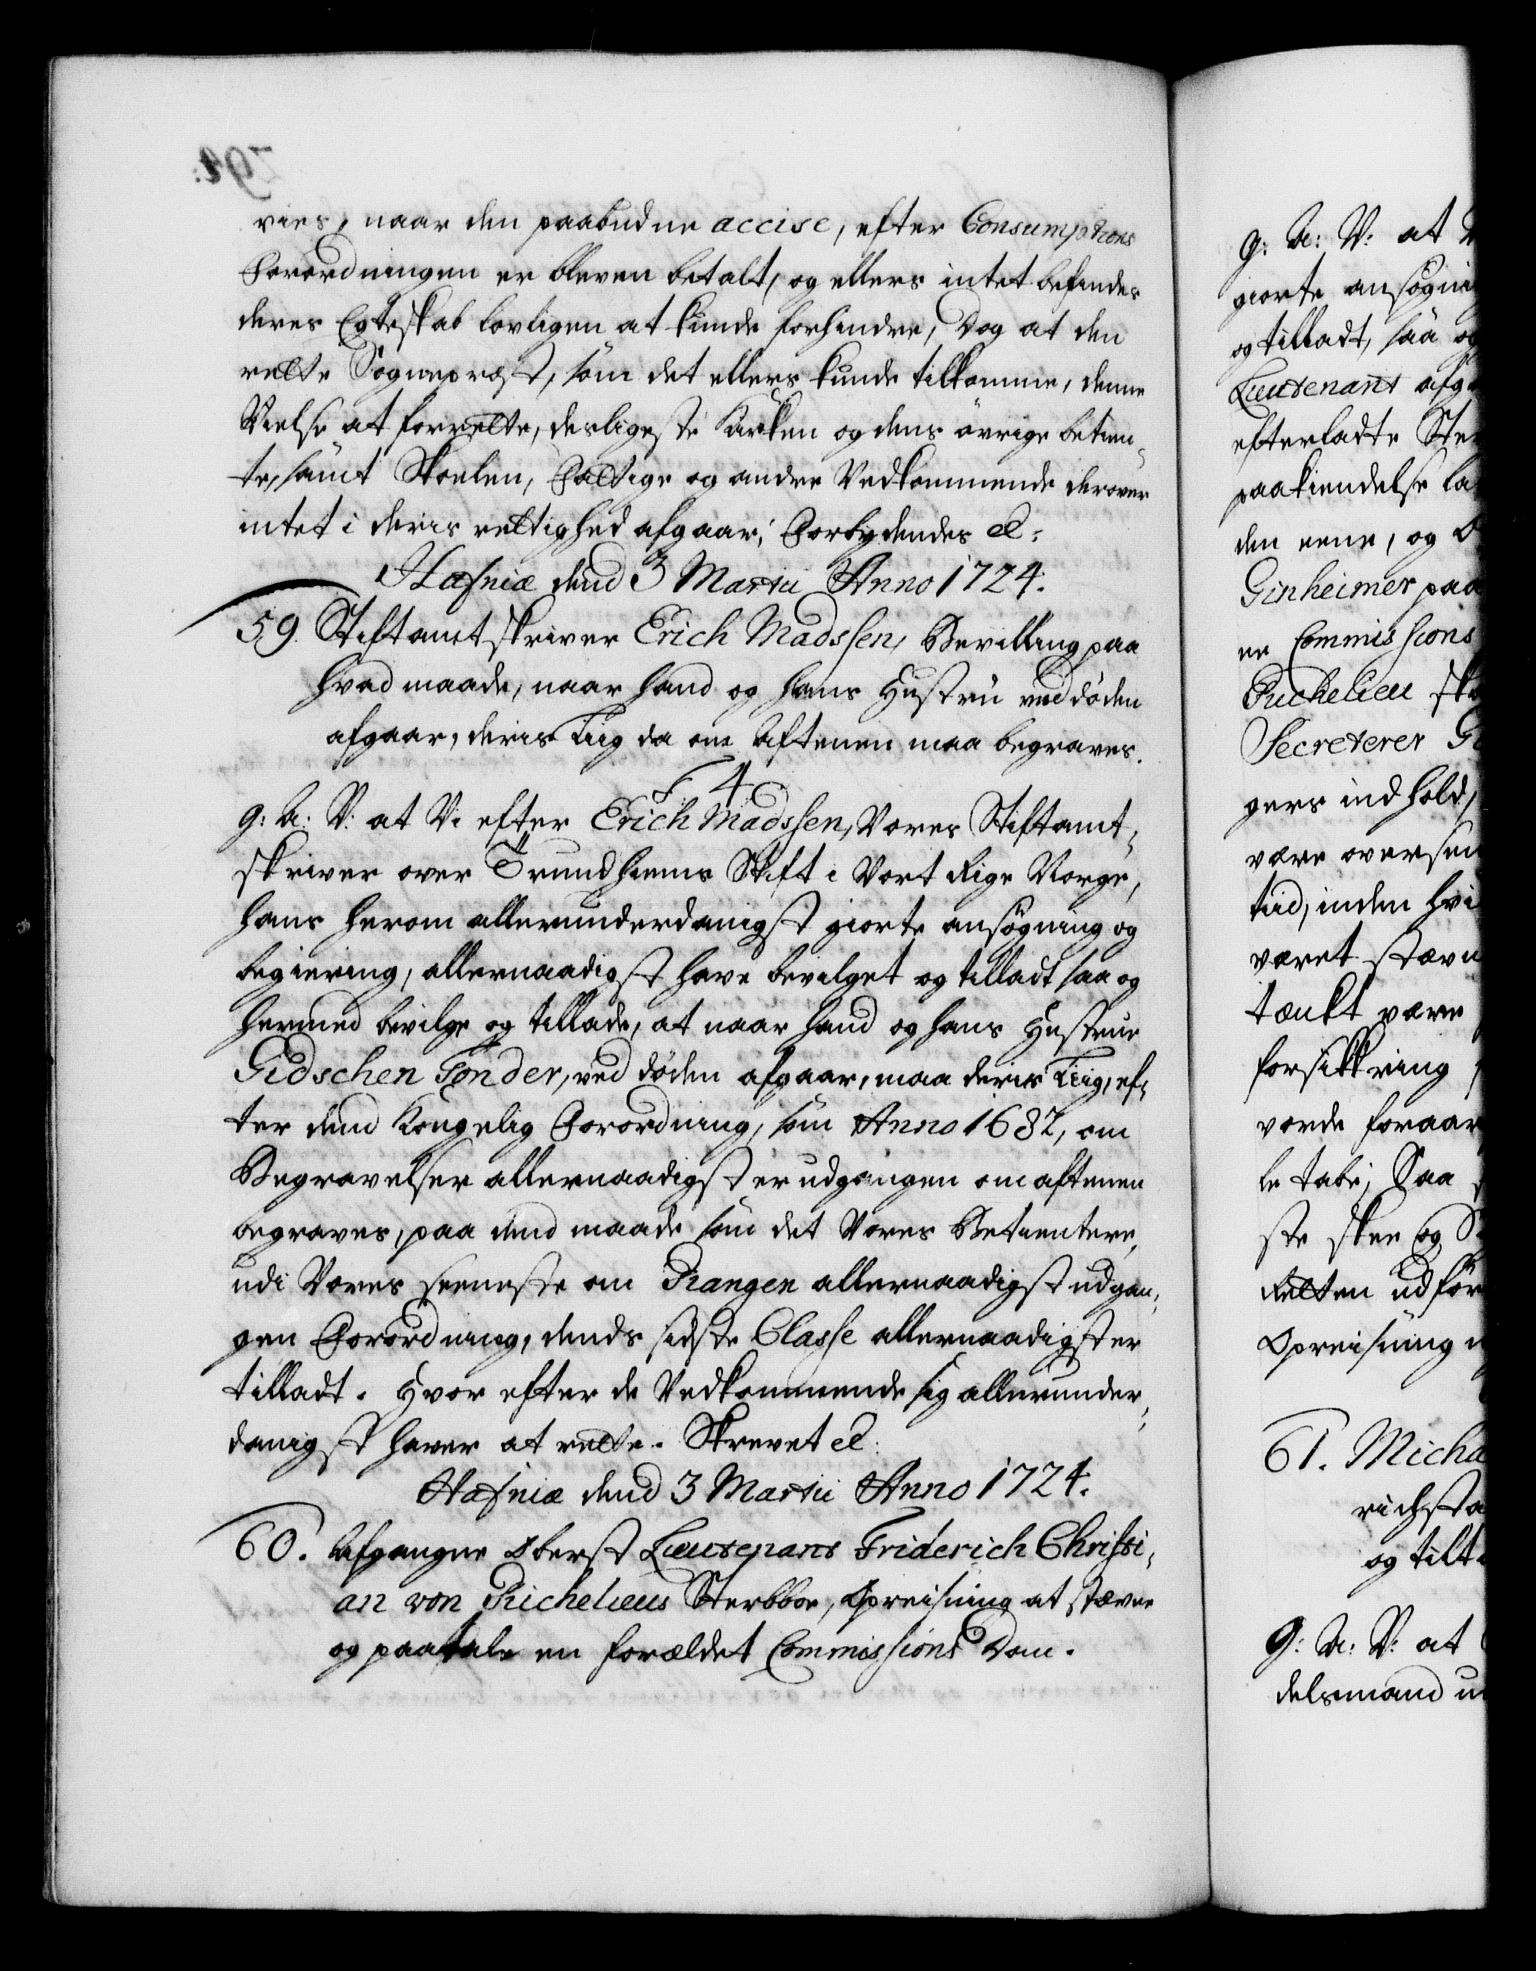 vies, naar den paabudne accise, efter Consumptions
Forordningen er bleven betalt, og ellers intet befindes
deres Egteskab lovligen at kunde forhindre, Dog at den
rette Sognepræst, som det ellers kunde tilkomme, denne
Vielse at forrette, desligeste Kirken og dens øvrige betien-
te, samt Skolen, Fattige og andre Vedkommende derover
intet i deris rettighed afgaar; Forbydendes &:
Hafniæ dend 3 Martii Anno 1724.
59. Stiftamtskriver Erich Madssen, Bevilling paa
hvad maade, naar hand og hans Hustru ved døden
afgaar, deris Liig da om Aftenen maa begraves.
F 4
G: A: V: at Vi efter Erich Madssen, Vores Stiftamt-
skriver over Trundhiems Stift i Vort Rige Norge,
hans herom allerunderdanigst giorte ansøgning og
begiering, allernaadigst have bevilget og tilladt saa og
hermed bevilge og tillade, at naar hand og hans Hustrue
Gidschen Tønder, ved døden afgaar, maa deris Liig, ef-
ter dend Kongelig Forordning, som Anno 1682, om
Begravelser allernaadigst er udgangen om aftenen
begraves, paa dend maade som det Vores Betientere,
udi Vores seeneste om Rangen allernaadigst udgan-
gen Forordning, dends sidste Classe allernaadigst er
tilladt. Hvor efter de Vedkommende sig allerunder-
danigst haver at rette. Skrevet &:
Hafniæ dend 3 Martii Anno 1724.
60. Afgangne Oberst Lieutenant Friderich Christi-
an von Richelieus Sterbboe, Opreisning at stævne
og paatale en forældet Commissions Dom.
g: A: V: at
giorte ansøgni
og tilladt, saa og
Lieutenant afg
efterladte Ste
paakiendelse la
den eene, og
Ginheimer paa
en Commissions
Richelieu sk
Secreterer G
gers indhold,
være oversen
tiid, inden hvi
været stævn
tænkt være
forsikkring
vorde foraar
le tabe; Saa
ste skee og
Retten udfør
Opreisning
61. Micha
richsta
og tilt
G: A: V: at
delsmand u